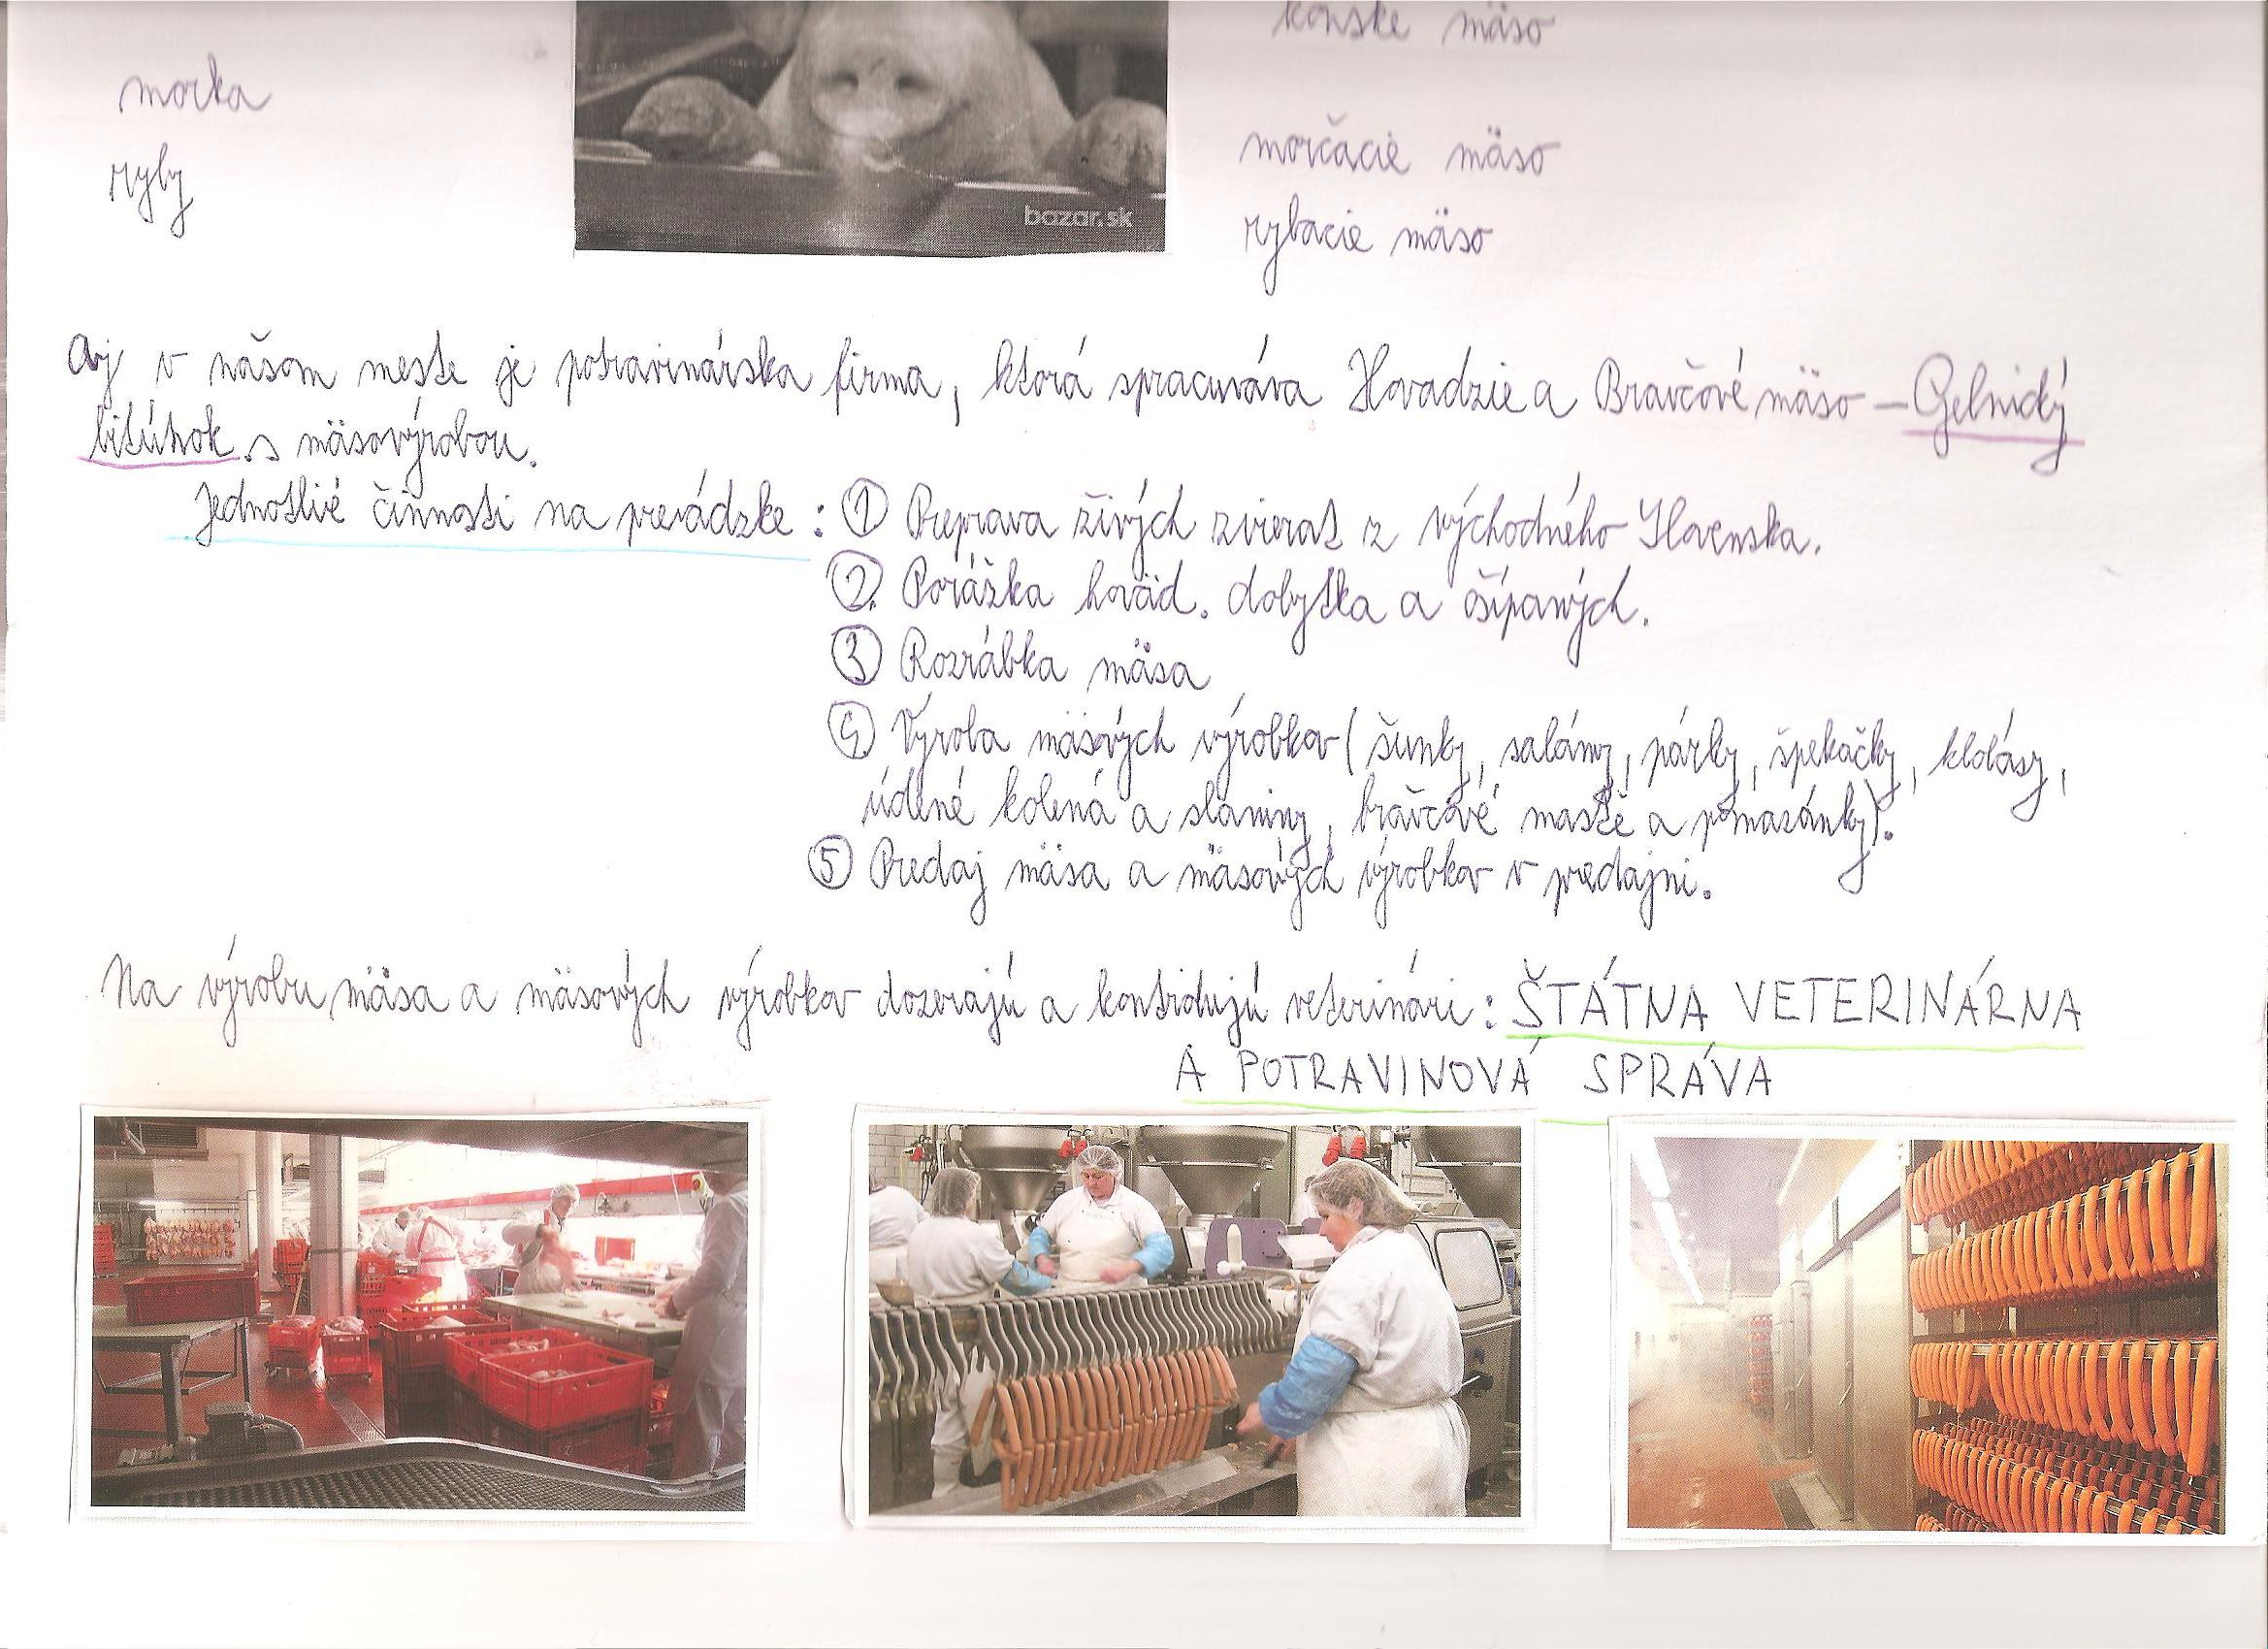 konske mäso
morka
morčacie mäso
ryby
bazar.sk
rybacie mäso
Aj v našom meste je potravinárska firma, ktorá spracuváva Hovadzie a Bravčové mäso – Gelnický
bitúnok s mäsovýrobou.
Jednotlivé činnosti na prevádzke : ① Preprava živých zvierat z východného Slovenska.
②. Porážka hoväd. dobytka a ošípaných.
③ Rozrábka mäsa
④ Výroba mäsových výrobkov ( šunky, salámy, párky, špekačky, klobásy,
údené kolená a slaniny, bravčové masťe a pomazánky).
⑤ Predaj mäsa a mäsových výrobkov v predajni.
Na výrobu mäsa a mäsových výrobkov dozerajú a kontrolujú veterinári : ŠTÁTNA VETERINÁRNA
A POTRAVINOVÁ SPRÁVA